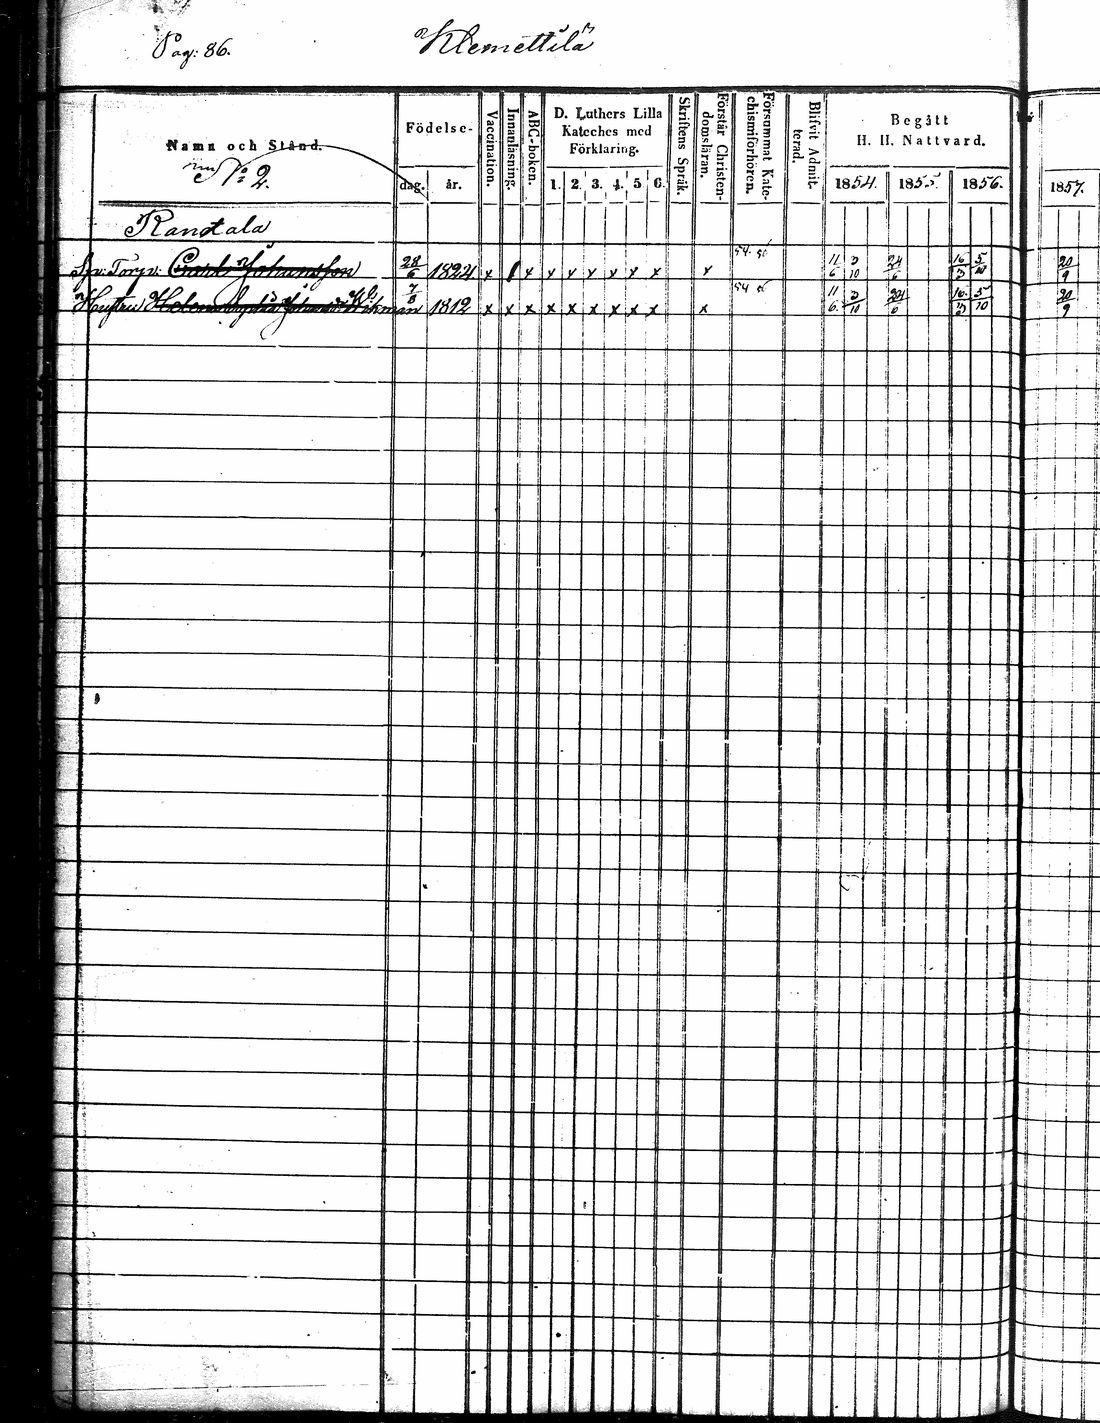 Pag: 86.
Klemettilä
Namn och Stånd.
No 2.
Födelse-
dag.
år.
Vaccination.
Innanläsning.
ABC-boken.
D. Luthers Lilla
Kateches med
Förklaring.
1. 2. 3. 4. 5. 6.
Skriftens Språk.
Förstår Christen-
domsläran.
Försummat Kate-
chismiförhören.
Blifvit Admit-
terad.
Begått
H. H. Nattvard.
1854. 1855. 1856.
1857.
Rantala
Torp: Carl Johansson 28/6 1824 x x x x x x x x x 20/9
Hustru Helena Johansd: Wikman 7/8 1812 x x x x x x x x x x 20/9